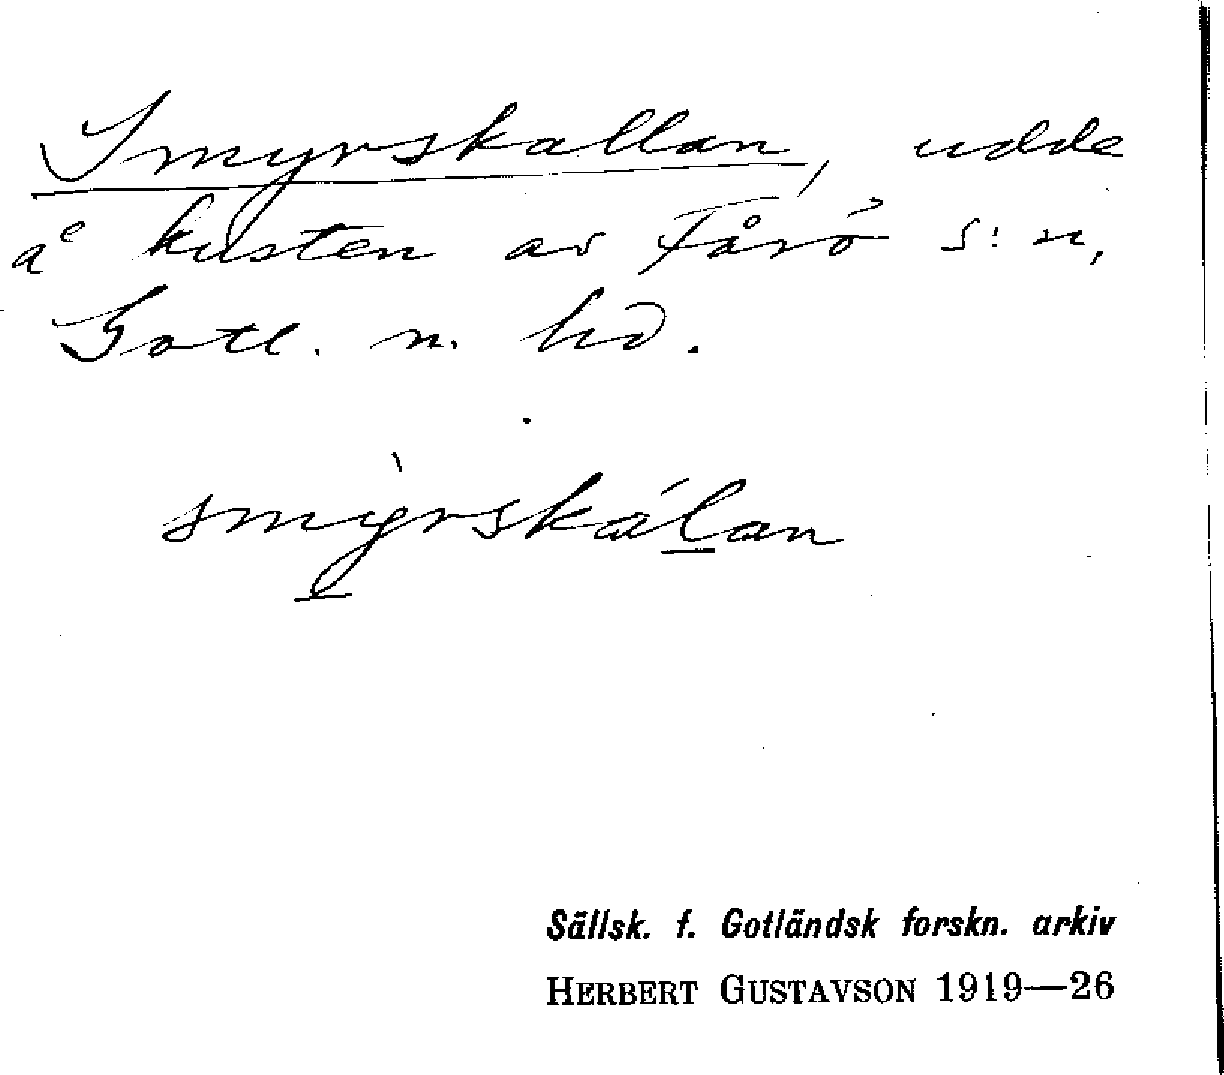 Smyrskallan, udde
å kusten av Fårö s:n,
Gotl. n. hd.
smỳrskálan
Sällsk. f. Gotländsk forskn. arkiv
HERBERT GUSTAVSON 1919—26